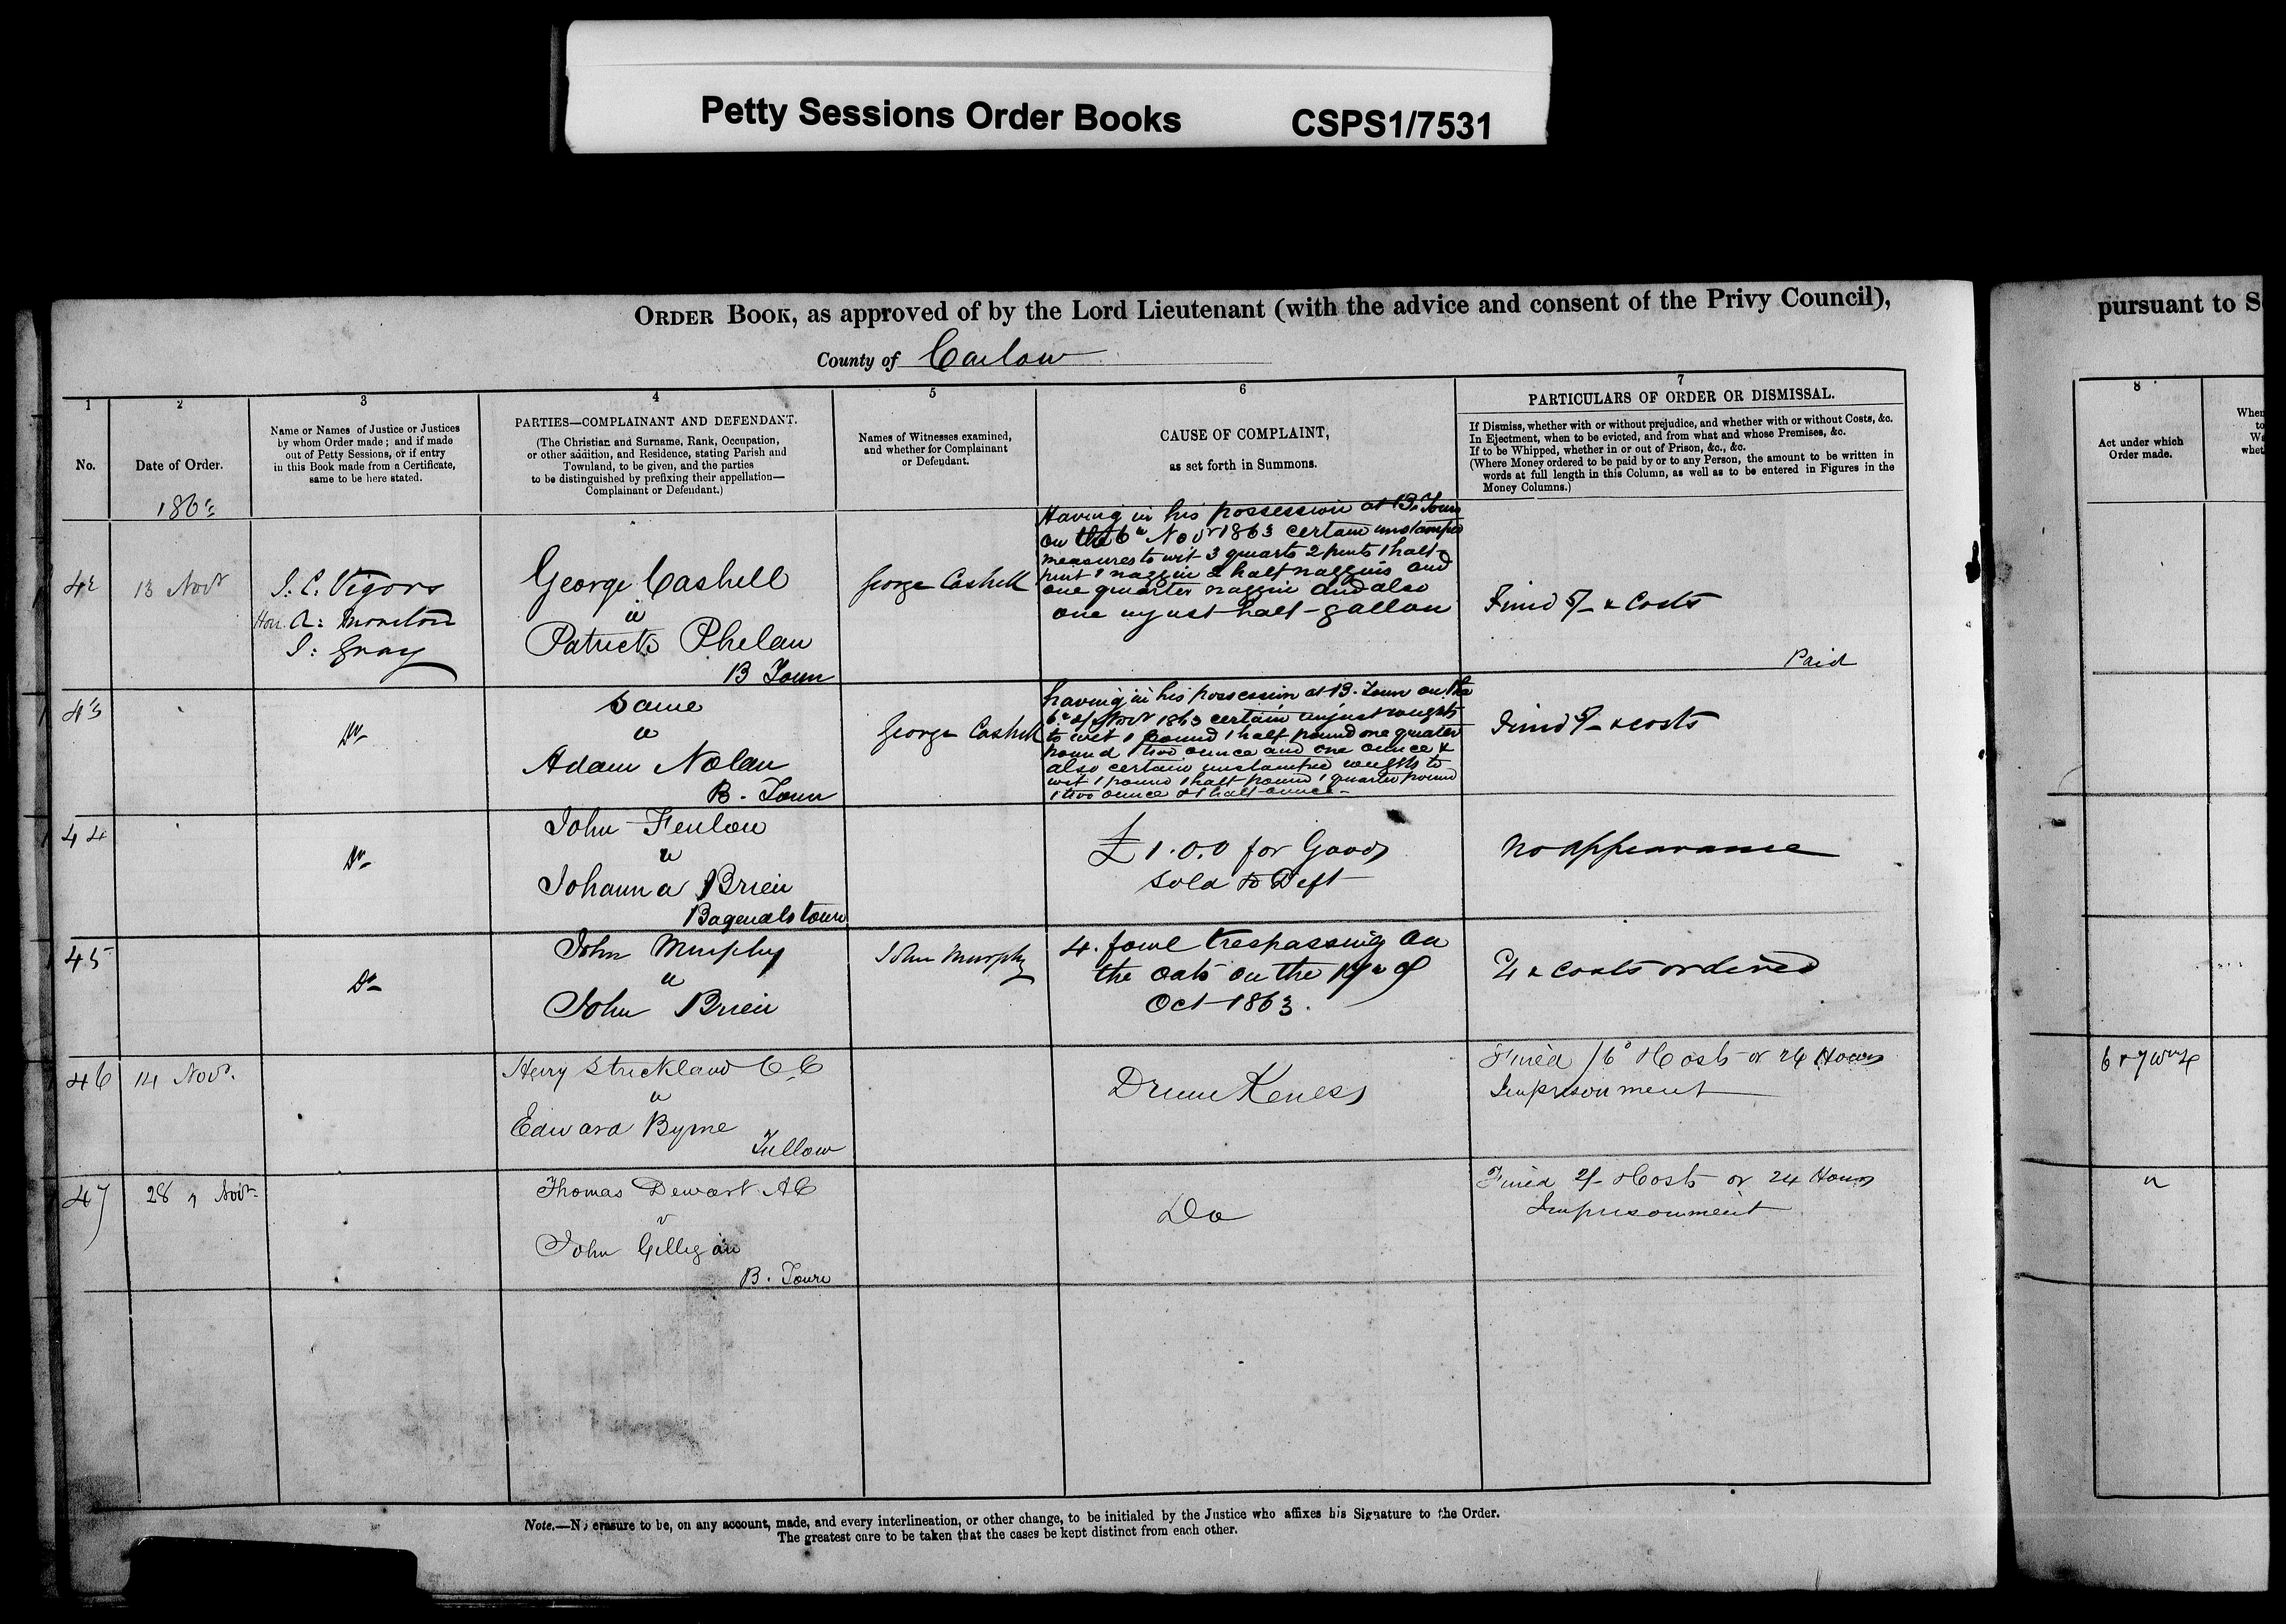 Petty Sessions Order Books CSPS1/7531
ORDER BOOK, as approved of by the Lord Lieutenant (with the advice and consent of the Privy Council),
County of Carlow
1
No.
2
Date of Order.
186
3
Name or Names of Justice or Justices
by whom Order made; and if made
out of Petty Sessions, or if entry
in this Book made from a Certificate,
same to be here stated.
4
PARTIES—COMPLAINANT AND DEFENDANT.
(The Christian and Surname, Rank, Occupation,
or other addition, and Residence, stating Parish and
Townland, to be given, and the parties
to be distinguished by prefixing their appellation—
Complainant or Defendant.)
5
Names of Witnesses examined,
and whether for Complainant
or Defendant.
6
CAUSE OF COMPLAINT,
as set forth in Summons.
7
PARTICULARS OF ORDER OR DISMISSAL.
If Dismiss, whether with or without prejudice, and whether with or without Costs, &c.
In Ejectment, when to be evicted, and from what and whose Premises, &c.
If to be Whipped, whether in or out of Prison, &c., &c.
(Where Money ordered to be paid by or to any Person, the amount to be written in
words at full length in this Column, as well as to be entered in Figures in the
Money Columns.)
42
13 Novr
J. C. Vigors
Hon. A: Moncton
J: Gray
George Cashell
v
Patrick Phelan
B Town
George Cashell
Having in his possession at B. Town
on the 6th Novr 1863 certain unstamped
measures to wit 3 quarts 2 pints 1 half-
pint 1 naggin 2 half naggins and
one quarter naggin and also
one unjust half-gallon
Fined 5/- & Costs
Paid
43
Do
Same
v
Adam Nolan
B. Town
George Cashell
having in his possession at B. Town on the
6th of Novr 1863 certain unjust weights
to wit 1 pound 1 half pound one quarter
pound 1 two ounce and one ounce &
also certain unstamped weights to
wit 1 pound 1 half pound 1 quarter pound
1 two ounce & 1 half ounce-
Fined 5/- & costs
44
Do
John Fenlon
v
Johanna Brien
Bagenalstown
£1.0.0 for Goods
Sold to Deft
No appearance
45
Do
John Murphy
v
John Brien
John Murphy
4 fowl trespassing on
the oats on the of
Oct 1863.
& costs ordered
46
14 Novr.
Henry Strickland C.C
v
Edward Byrne
Tullow
Drunkeness
Fined /6d & Costs or 24 Hours
Imprisonment
47
28 " Novr
Thomas Dewart A C
v
John Gilligan
B. Town
Do
Fined 2/- & Costs or 24 Hours
Imprisonment
Note.—No erasure to be, on any account, made, and every interlineation, or other change, to be initialed by the Justice who affixes his Signature to the Order.
The greatest care to be taken that the cases be kept distinct from each other.
pursuant to S
8
Act under which
Order made.
When
to
W
whet
6 & 7 Wm 4
"